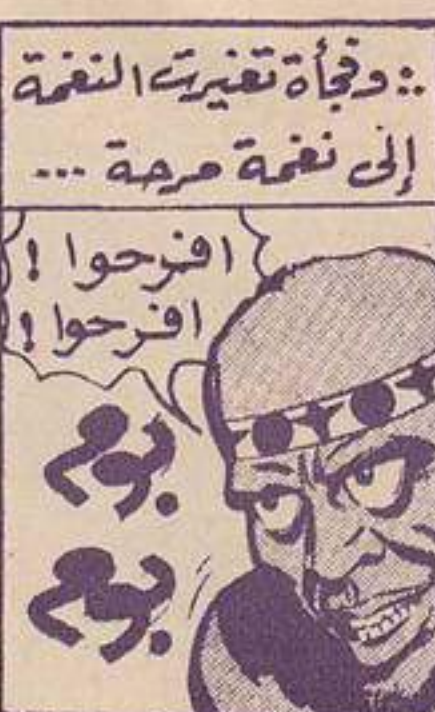 .: وفجأة تغيرت النغمة
إلى نغمة مرحة ...
افرحوا !
افرحوا !
بوم
بوم